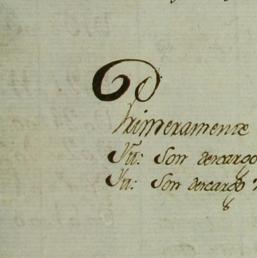 Primeramente
Ytt: Son descargo
Ytt: Son descargo